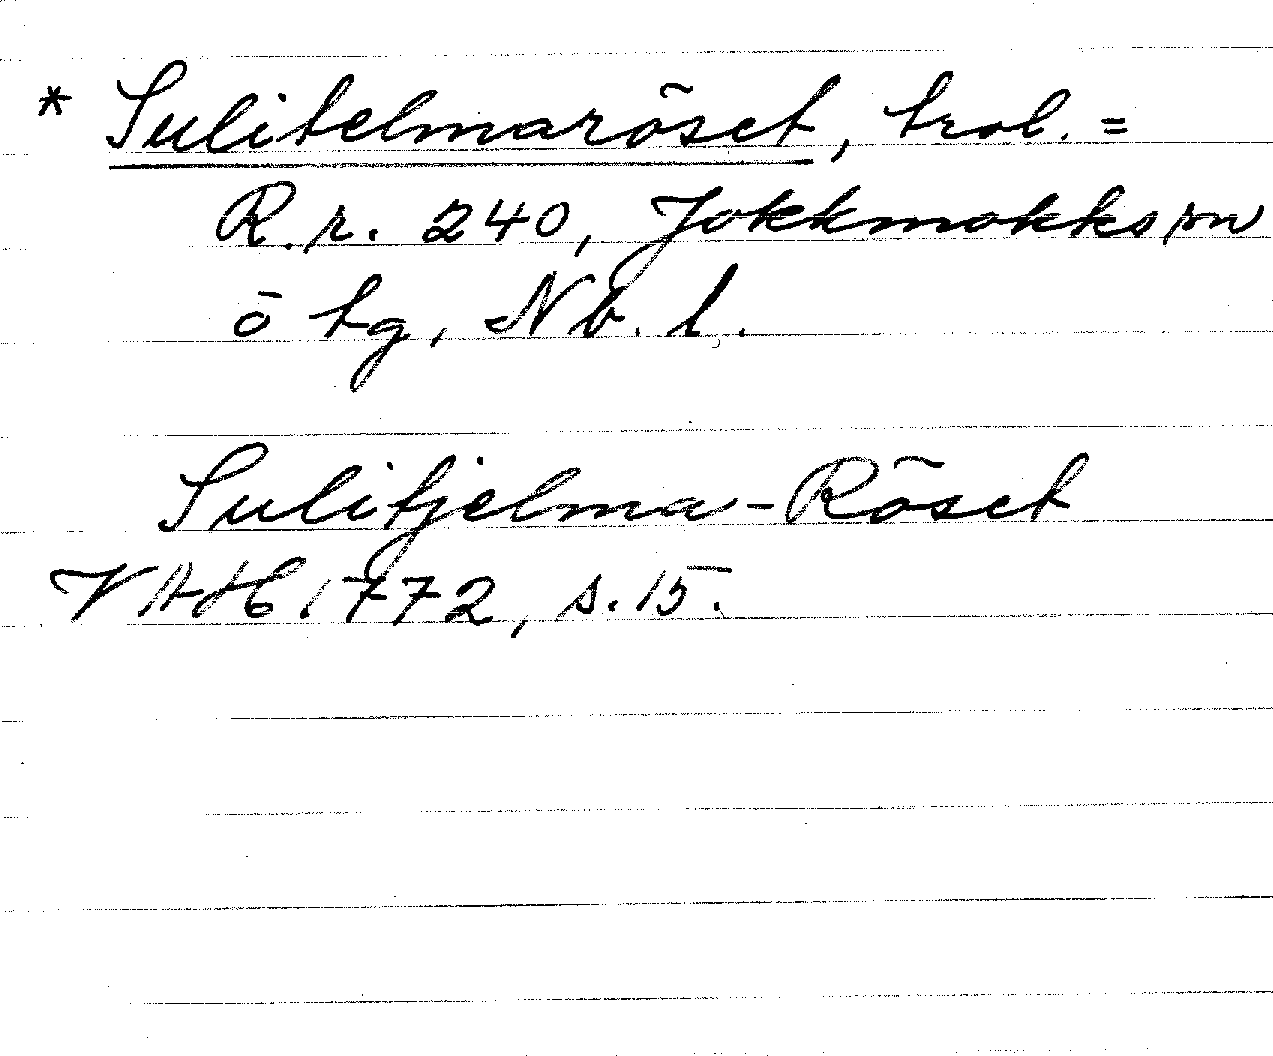 * Sulitelmaröset, trol. =
R.r. 240, Jokkmokks sn
ö tg, Nb. l.
Sulitjelma-Röset
VAH 1772, s. 15.